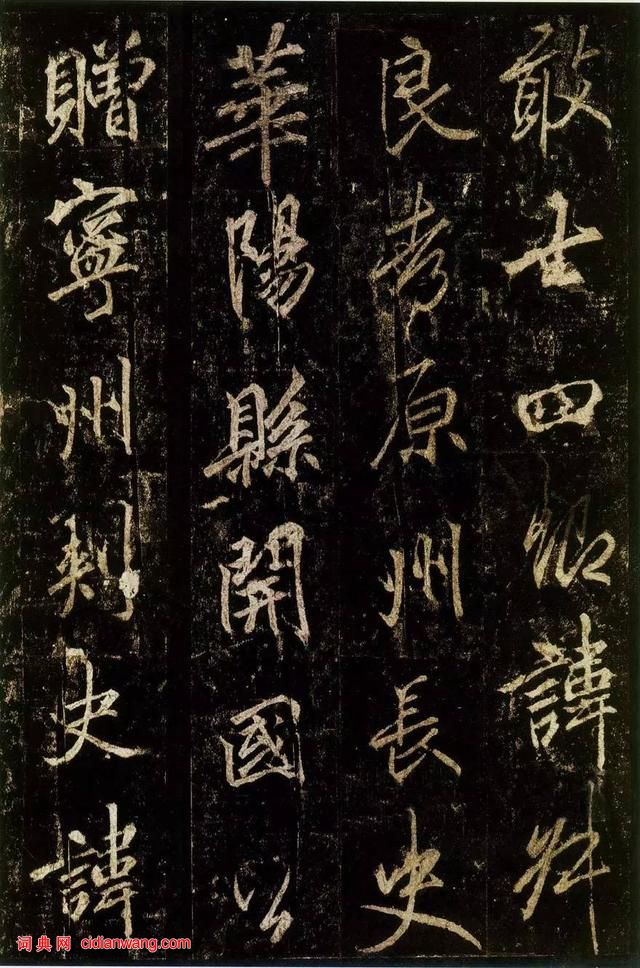 敢四卿諱叔
良考原州長史
華陽縣開國公
贈寧州刺史諱
词典网 cidianwang.com